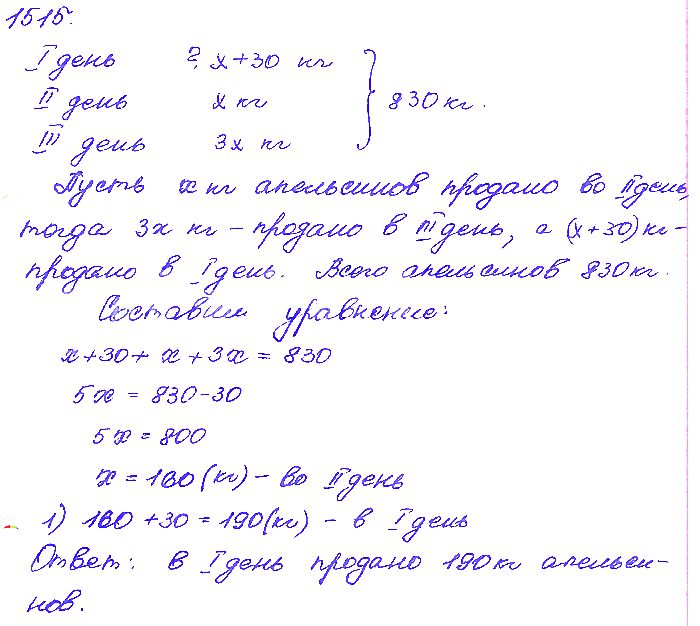 1515.
I день ? x+30 кг
II день x кг } 830 кг.
III день 3x кг
Пусть x кг апельсинов продано во II день,
тогда 3x кг - продано в III день, а (x+30) кг -
продано в I день. Всего апельсинов 830 кг.
Составим уравнение:
x+30+x+3x=830
5x=830-30
5x=800
x=160(кг)- во II день
1) 160+30=190(кг) - в I день
Ответ: в I день продано 190 кг апельси-
нов.